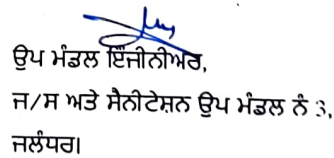 ਉਪ ਮੰਡਲ ਇੰਜੀਨੀਅਰ,
ਜ/ਸ ਅਤੇ ਸੈਨੀਟੇਸ਼ਨ ਉਪ ਮੰਡਲ ਨੰ 3,
ਜਲੰਧਰ।